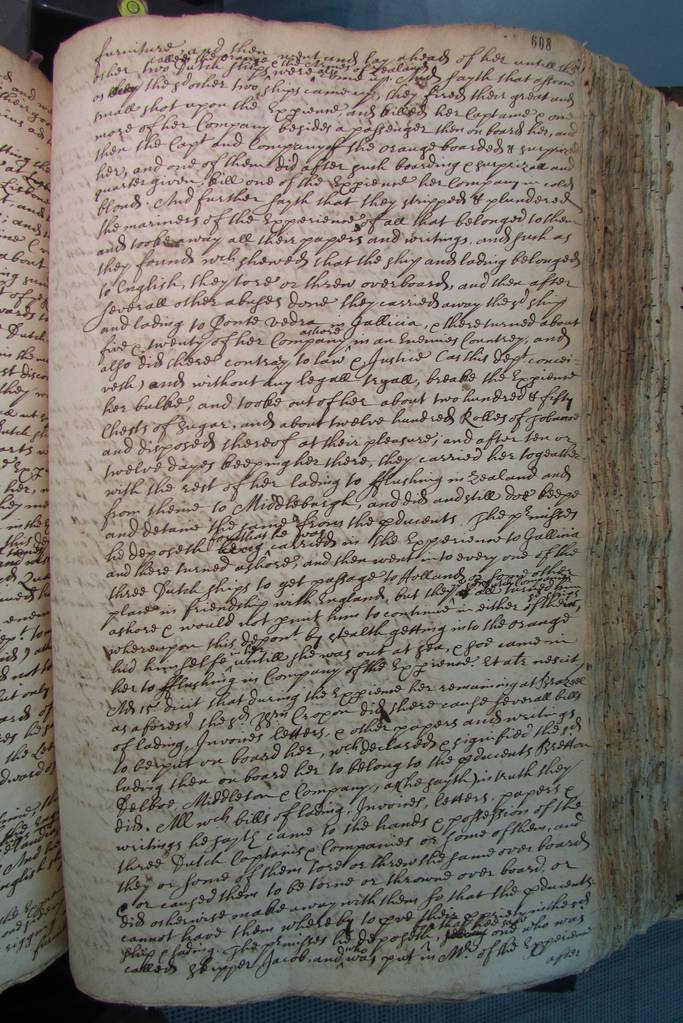 608
furniture and then went and lay ahead of her untill the
called the Orange & the Times of Zealand
other two Dutch ships were come up. And sayth that assoone
as the sd other two ships came up, they fired their great and
small shot upon the Experience, and killed her Captaine & one
more of her Company besides a passenger then on board her, and
then the Capt and Company of the Orange boarded & surprized
her, and one of them did after such boarding & surprizall and
quarter given, kill one of the Experience her Company in cold
bloud. And further sayth that they stripped & plundered
the mariners of the Experience of all that belonged to them
and tooke away all their papers and writings, and such as
they found wch shewed that the ship and lading belonged
to English, they tore or threw overboard, and then after
severall other abuses done they carried away the sd ship
and lading to Ponte vedra in Gallicia, & there turned about
ashore
five & twenty of her Company in an Enemies Countrey, and
also did there contrary to law & Justice (as this dept concei-
veth) and without any legall tryall, breake the Experience
her bulke, and tooke out of her about two hundred & fifty
Chests of Sugar, and about twelve hundred Rolles of tobaccoe
and disposed thereof at their pleasure; and after ten or
twelve dayes keeping her there, they carried her togeather
with the rest of her lading to fflushing in Zealand and
from thence to Middleburgh, and did and still doe keepe
and detaine the same from the pducents. The pmisses
he deposeth for that he was
carried in the Experience to Gallicia
and there turned ashore, and then went in to every one of the
three Dutch ships to get passage to Holland or some other
place in friendship with England but they
ashore & would not pmit him to continue in either of them,
whereupon this depont by stealth getting into the Orange
hid himselfe untill she was out at sea, & soe came in
her to fflushing in Company of the Experience. Et alr nescit.
Ad 15 dicit that during the Experience her remaining at Brazeel
as aforesd the sd Wm Croxon did there cause severall bills
of lading, Invoices letters, & other papers and writings
to be put on board her, wch declared & signified the sd
lading then on board her to belong to the pducents Bretton
Delboe, Middleton & Company, as he sayth in truth they
did. All wch bills of lading, Invoices, letters, papers &
writings he sayth came to the hands & possession of the
three Dutch Captains & Companies or some of them, and
they or some of them tore or threw the same over board
& or caused them to be torne or throwne over board, or
did otherwise make away with them so that the pducents
cannot have them whereby to prove their propriety in the sd
ship & lading. The premisses he deposeth, one who was
called Skipper Jacob and who was put in Mr of the Experience
after